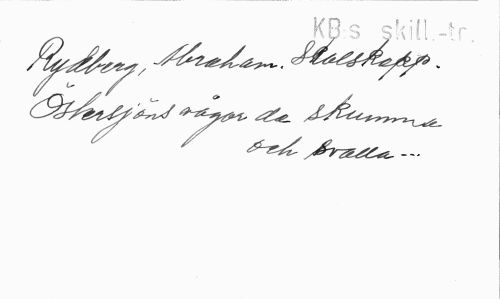 KB:s skill.-tr.
Rydberg, Abraham. Skolskepp.
Östersjöns vågor de skumma
och svalla ---